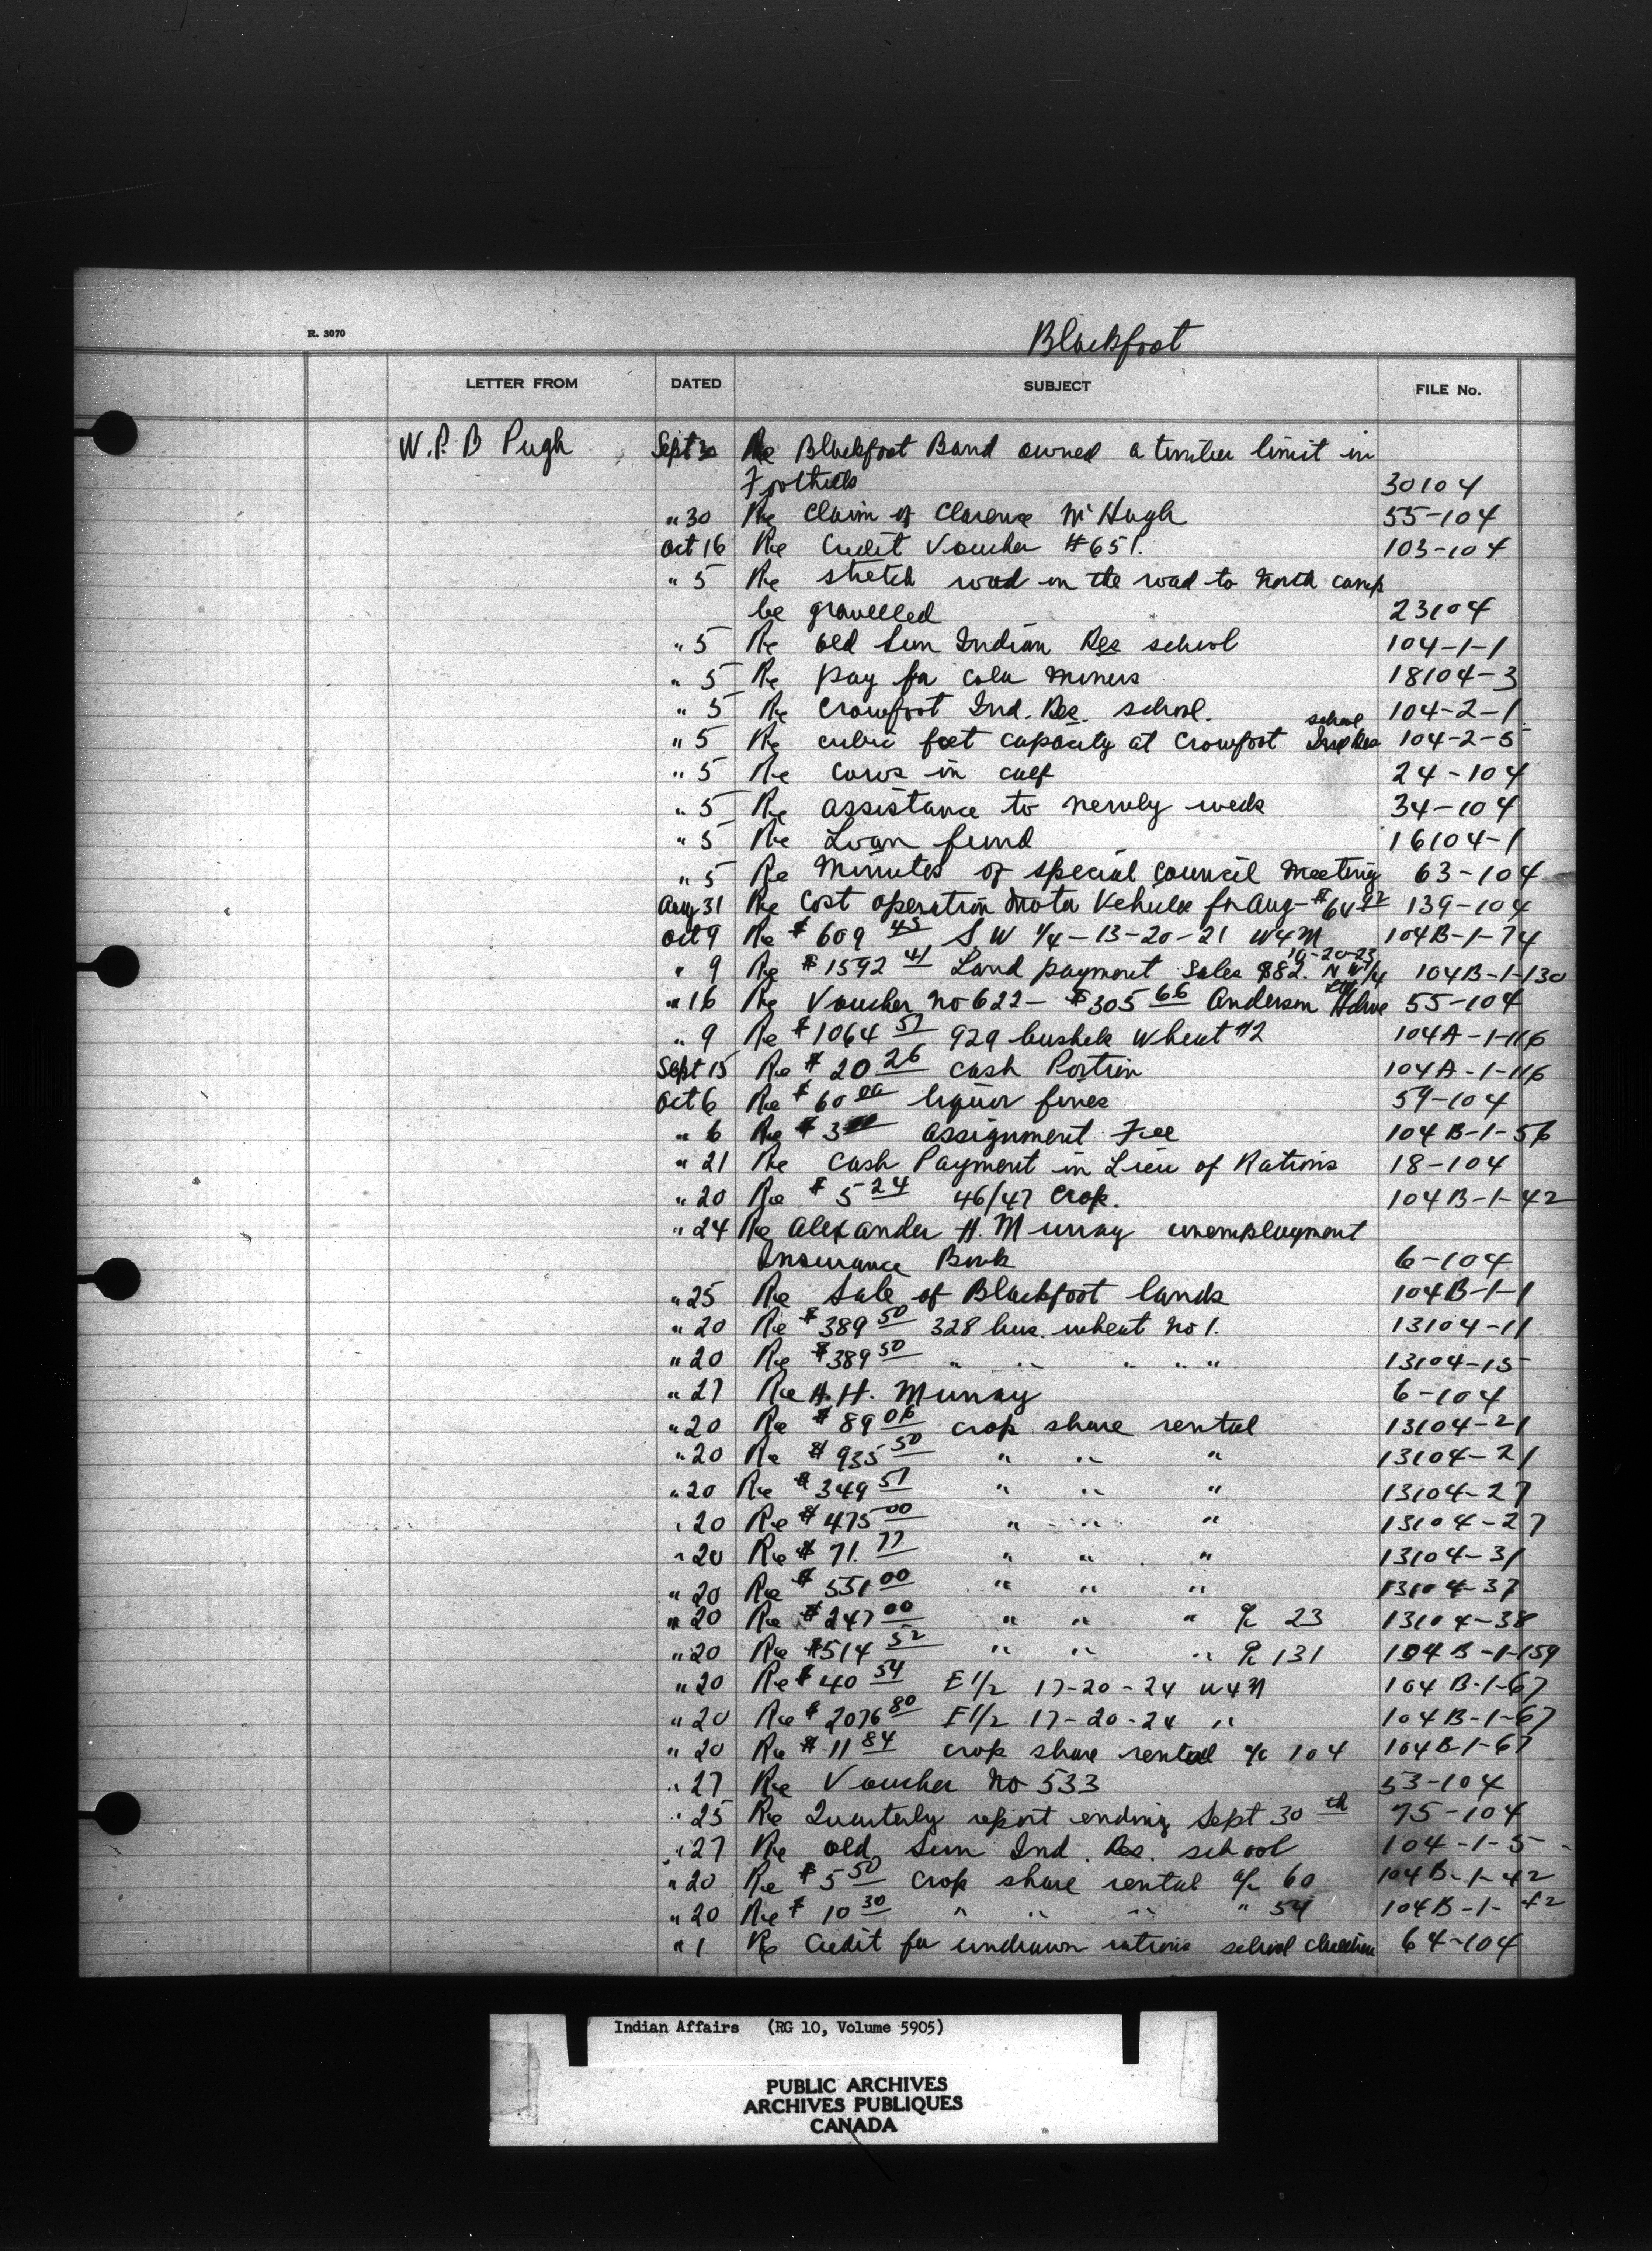 R. 3070
Blackfoot
LETTER FROM DATED SUBJECT FILE No.
W. P. B Pugh Sept 30 Re Blackfoot Band owned a timber limit in
Foothills 30104
" 30 Re Claim of Clarence McHugh 55-104
Oct 16 Re Credit Voucher #651. 103-104
" 5 Re stretch road on the road to North camp
be gravelled 23104
" 5 Re old Sun Indian Res school 104-1-1
" 5 Re pay for cola miners 18104-3
" 5 Re Crowfoot Ind. Res. school. 104-2-1
" 5 Re cubic feet capacity at Crowfoot Ind Res school 104-2-5
" 5 Re cows in calf 24-104
" 5 Re assistance to newly weds 34-104
" 5 Re Loan fund 16104-1
" 5 Re Minutes of special council meeting 63-104
Aug 31 Re Cost operation motor Vehicle for Aug - $64 92 139-104
Oct 9 Re $609 45 S W 1/4 - 13-20-21 W4M 104B-1-74
" 9 Re $1592 41 Land payment Sales 882. N W 1/4 10-20-23 104B-1-130
" 16 Re Voucher no 622 - $305 66 Anderson 55-104
" 9 Re $1064 57 929 bushels wheat #2 104A-1-116
Sept 15 Re $20 26 cash Portion 104A-1-116
Oct 6 Re $60 00 liquor fines 59-104
" 6 Re $3 00 assignment Fee 104B-1-56
" 21 Re Cash Payment in Lieu of Rations 18-104
" 20 Re $5 24 46/47 Crop. 104B-1-42
" 24 Re Alexander H. Murray unemployment
Insurance Book 6-104
" 25 Re Sale of Blackfoot lands 104B-1-1
" 20 Re $389 50 328 bus. wheat no 1. 13104-11
" 20 Re $389 50 " " " " " 13104-15
" 27 Re A. H. Murray 6-104
" 20 Re $89 06 crop share rental 13104-21
" 20 Re $935 50 " " " 13104-21
" 20 Re $349 57 " " " 13104-27
" 20 Re $475 00 " " " 13104-27
" 20 Re $71. 77 " " " 13104-31
" 20 Re $551 00 " " " 13104-37
" 20 Re $247 00 " " " % 23 13104-38
" 20 Re $514 52 " " " % 131 104B-1-159
" 20 Re $40 54 E 1/2 17-20-24 W4M 104B-1-67
" 20 Re $2076 80 E 1/2 17-20-24 " 104B-1-67
" 20 Re $11 84 crop share rental a/c 104 104B-1-67
" 27 Re Voucher No 533 53-104
" 25 Re Quarterly report ending Sept 30 th 75-104
" 27 Re old Sun Ind. Res. school 104-1-5
" 20 Re $5 50 crop share rental a/c 60 104B-1-42
" 20 Re $10 30 " " " " 54 104B-1-42
" 1 Re Credit for undrawn rations school children 64-104
Indian Affairs (RG 10, Volume 5905)
PUBLIC ARCHIVES
ARCHIVES PUBLIQUES
CANADA